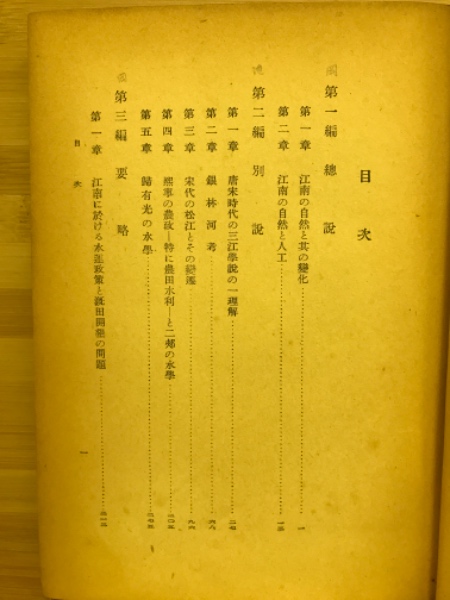 目次
第一編 總說
第一章 江南の自然と其の變化 一
第二章 江南の自然と人工
第二編 別說
第一章 唐宋時代の三江學說の一理解
第二章 銀林河考 六八
第三章 宋代の松江とその變遷 九六
第四章 熙寧の農政—特に農田水利—と二郟の水學 二〇五
第五章 歸有光の水學 二七五
第三編 要略
第一章 江南に於ける水運政策と圍田開發の問題
目次
一